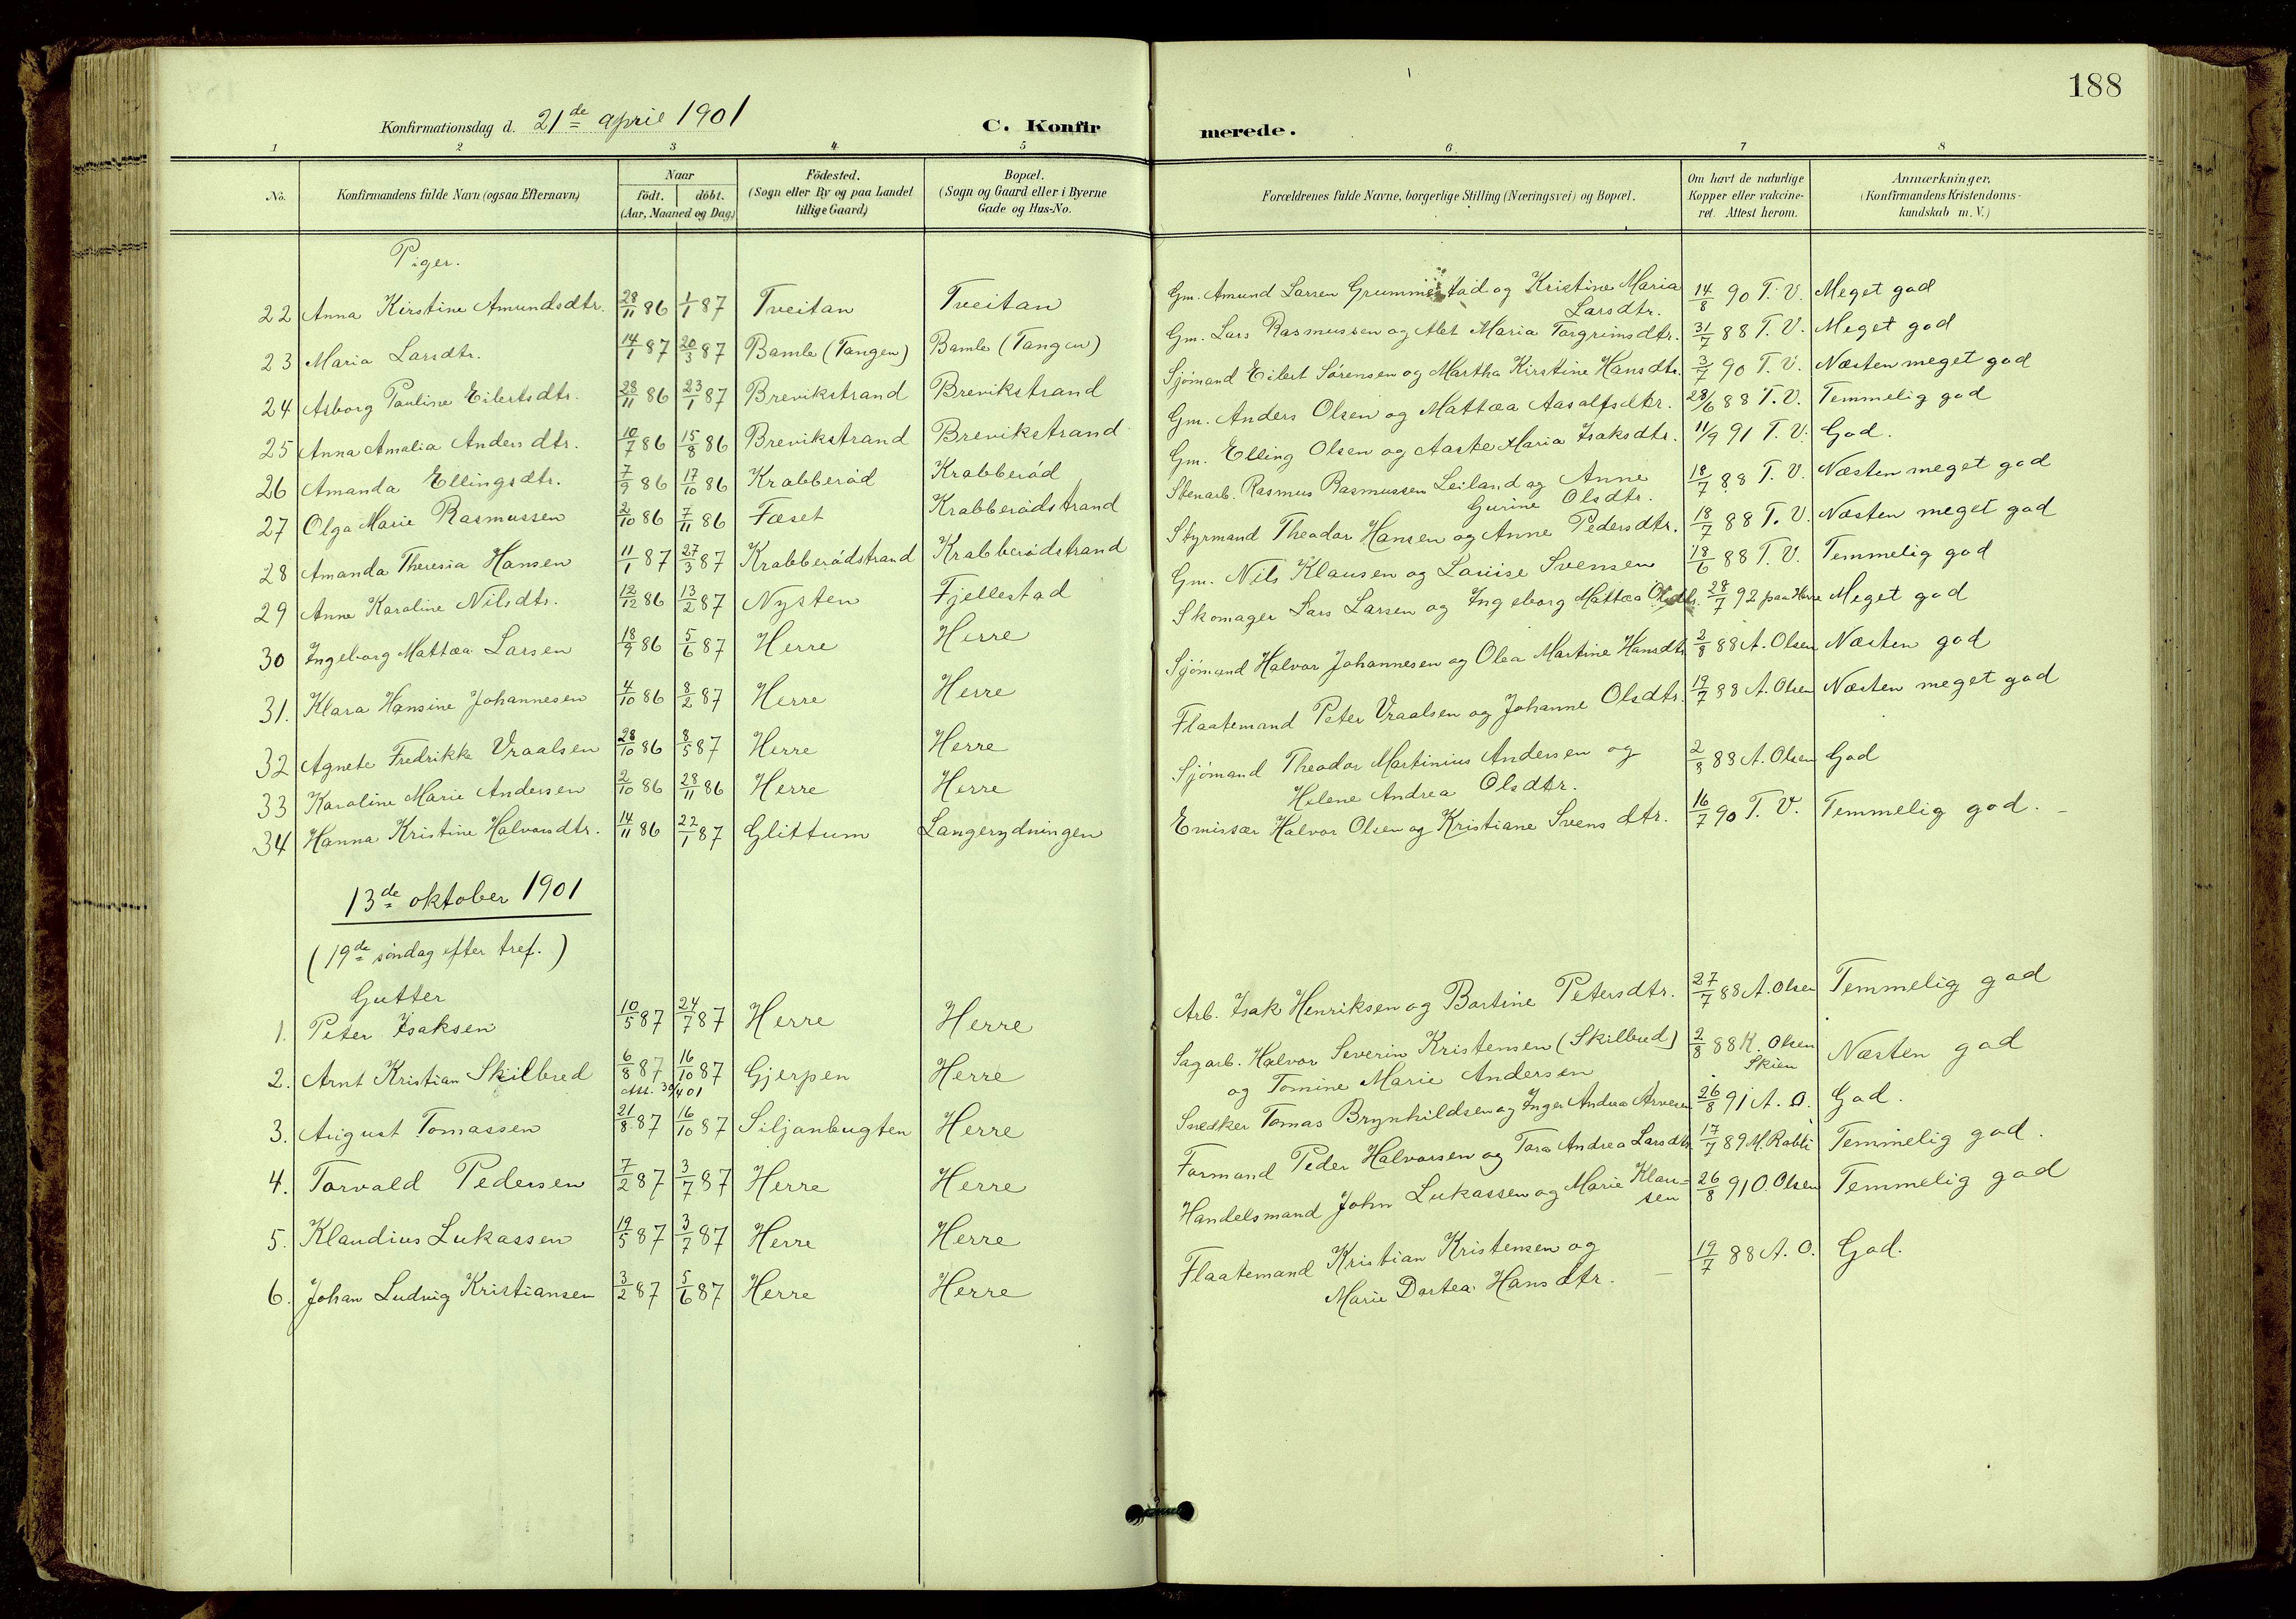 188
Konfirmationsdag d. 21de april 1901
C. Konfirmerede.
1 2 3 4 5 6 7 8
No. Konfirmandens fulde Navn (ogsaa Efternavn) Naar födt. döbt. (Aar, Maaned og Dag) Födested. (Sogn eller By og paa Landet tillige Gaard) Bopæl. (Sogn og Gaard eller i Byerne Gade og Hus-No. Forældrenes fulde Navne, borgerlige Stilling (Næringsvei) og Bopæl. Om havt de naturlige Kopper eller vakcineret. Attest herom. Anmærkninger. (Konfirmandens Kristendomskundskab m. V.)
Piger.
22 Anna Kirstine Amundsdtr. 28/11 86 1/1 87 Tveitan Tveitan Gm. Amund Larsen Grummestad og Kristine Maria Larsdtr. 14/8 90 T. V. Meget god
23 Maria Larsdtr. 14/1 87 20/3 87 Bamle (Tangen) Bamle (Tangen) Gm. Lars Rasmussen og Alet Maria Torgrimsdtr. 31/7 88 T. V. Meget god
24 Asborg Pauline Eilertsdtr. 28/11 86 23/1 87 Brevikstrand Brevikstrand Sjömand Eilert Sörensen og Martha Kirstine Hansdtr. 3/7 90 T. V. Næsten meget god
25 Anna Amalia Andersdtr. 10/7 86 15/8 86 Brevikstrand Brevikstrand Gm. Anders Olsen og Mattæa Aasolfsdtr. 28/6 88 T. V. Temmelig god
26 Amanda Ellingsdtr. 7/9 86 17/10 86 Krabberöd Krabberöd Gm. Elling Olsen og Aaste Maria Isaksdtr. 11/9 91 T. V. God.
27 Olga Marie Rasmussen 2/10 86 7/11 86 Fæset Krabberödstrand Stenarb. Rasmus Rasmussen Leiland og Anne Gurine Olsdtr. 18/7 88 T. V. Næsten meget god
28 Amanda Theresia Hansen 11/1 87 27/3 87 Krabberödstrand Krabberödstrand Styrmand Theodor Hansen og Anne Pedersdtr. 18/7 88 T. V. Næsten meget god
29 Anne Karoline Nilsdtr. 12/12 86 13/2 87 Nysten Fjellestad Gm. Nils Klausen og Louise Svensen 18/6 88 T. V. Temmelig god
30 Ingeborg Mattæa Larsen 18/9 86 5/6 87 Herre Herre Skomager Lars Larsen og Ingeborg Mattæa Olsdtr. 28/7 92 paa Herre Meget god
31. Klara Hansine Johannesen 4/10 86 8/2 87 Herre Herre Sjömand Halvor Johannesen og Olea Martine Hansdtr 2/8 88 A. Olsen Næsten god
32 Agnete Fredrikke Vraalsen 28/10 86 8/5 87 Herre Herre Flaatemand Peter Vraalsen og Johanne Olsdtr. 19/7 88 A. Olsen Næsten meget god
33 Karoline Marie Andersen 2/10 86 28/11 86 Herre Herre Sjömand Theodor Martinius Andersen og Helene Andrea Olsdtr. 2/8 88 A. Olsen God
34 Hanna Kristine Halvorsdtr. 14/11 86 22/1 87 Glittum Langerydningen Emissær Halvor Olsen og Kristiane Svensdtr. 16/7 90 T. V. Temmelig god.
13de oktober 1901
(19de söndag efter tref.)
Gutter
1. Peter Isaksen 10/5 87 24/7 87 Herre Herre Arb. Isak Henriksen og Bartine Petersdtr. 27/7 88 A. Olsen Temmelig god
2. Arnt Kristian Skilbred 6/8 87 16/10 87 Att. 30/4 01 Gjerpen Herre Sagarb. Halvor Severin Kristensen (Skilbred) og Tomine Marie Andersen 2/8 88 K. Olsen Skien Næsten god
3. August Tomassen 21/8 87 16/10 87 Siljanbugten Herre Snedker Tomas Brynhildsen og Inger Andrea Arvesen 26/8 91 A. O. God.
4. Torvald Pedersen 7/2 87 3/7 87 Herre Herre Formand Peder Halvorsen og Tora Andrea Larsdtr 17/7 89 M. Rabbe Temmelig god.
5. Klaudius Lukassen 19/5 87 3/7 87 Herre Herre Handelsmand John Lukassen og Marie Klausen 26/8 91 O. Olsen Temmelig god
6. Johan Ludvig Kristiansen 3/2 87 5/6 87 Herre Herre Flaatemand Kristian Kristensen og Marie Dortea Hansdtr. 19/7 88 A. O. God.